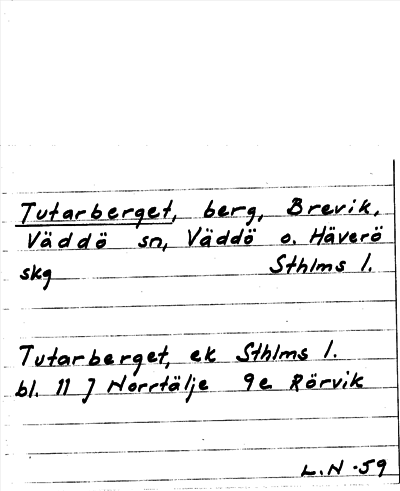 Tutarberget, berg, Brevik,
Väddö sn, Väddö o. Häverö
skg Sthlms l.
Tutarberget, ek Sthlms l.
bl. 11 J Norrtälje 9e Rörvik
L.N -59